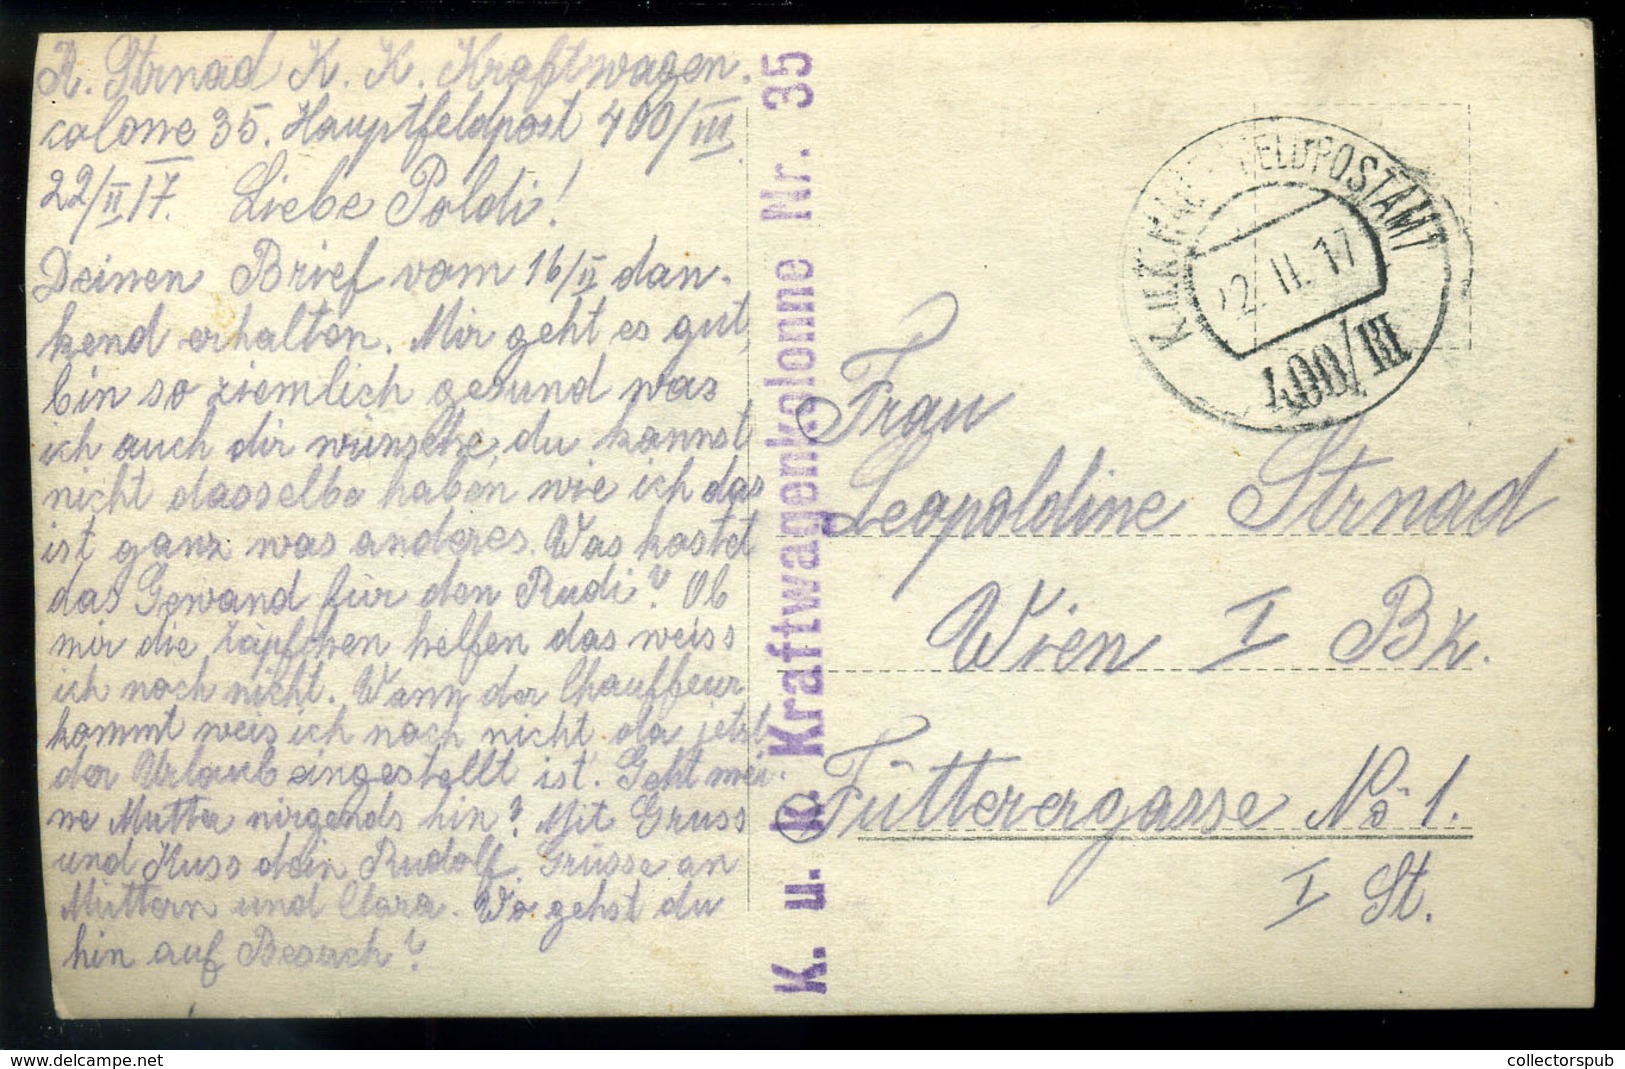 R. Strnad K. K. Kraftwagen-
calone 35. Hauptfeldpost 400/III
22/II 17. Liebe Poldi!
Deinen Brief vom 16/II dan-
kend erhalten. Mir geht es gut,
bin so ziemlich gesund was
ich auch dir wünsche, du kannst
nicht dasselbe haben, wie ich das
ist ganz was anderes. Was kostet
das Gewand für den Rudi? Ob
mir die Zäpfchen helfen das weiss
ich noch nicht. Wann der Chauffeur
kommt weis ich noch nicht da jetzt
der Urlaub eingestellt ist. Geht mei-
ne Mutter nirgends hin? Mit Gruss
und Kuss dein Rudolf. Grüsse an
Muttern und Clara. Wo gehst du
hin auf Besuch?
K. u. k. Kraftwagenkolonne Nr. 35
FELDPOSTAMT
22. II. 17
400/III
Frau
Leopoldine Strnad
Wien I Bz.
Füttererergasse No 1.
I St.
collectorspub